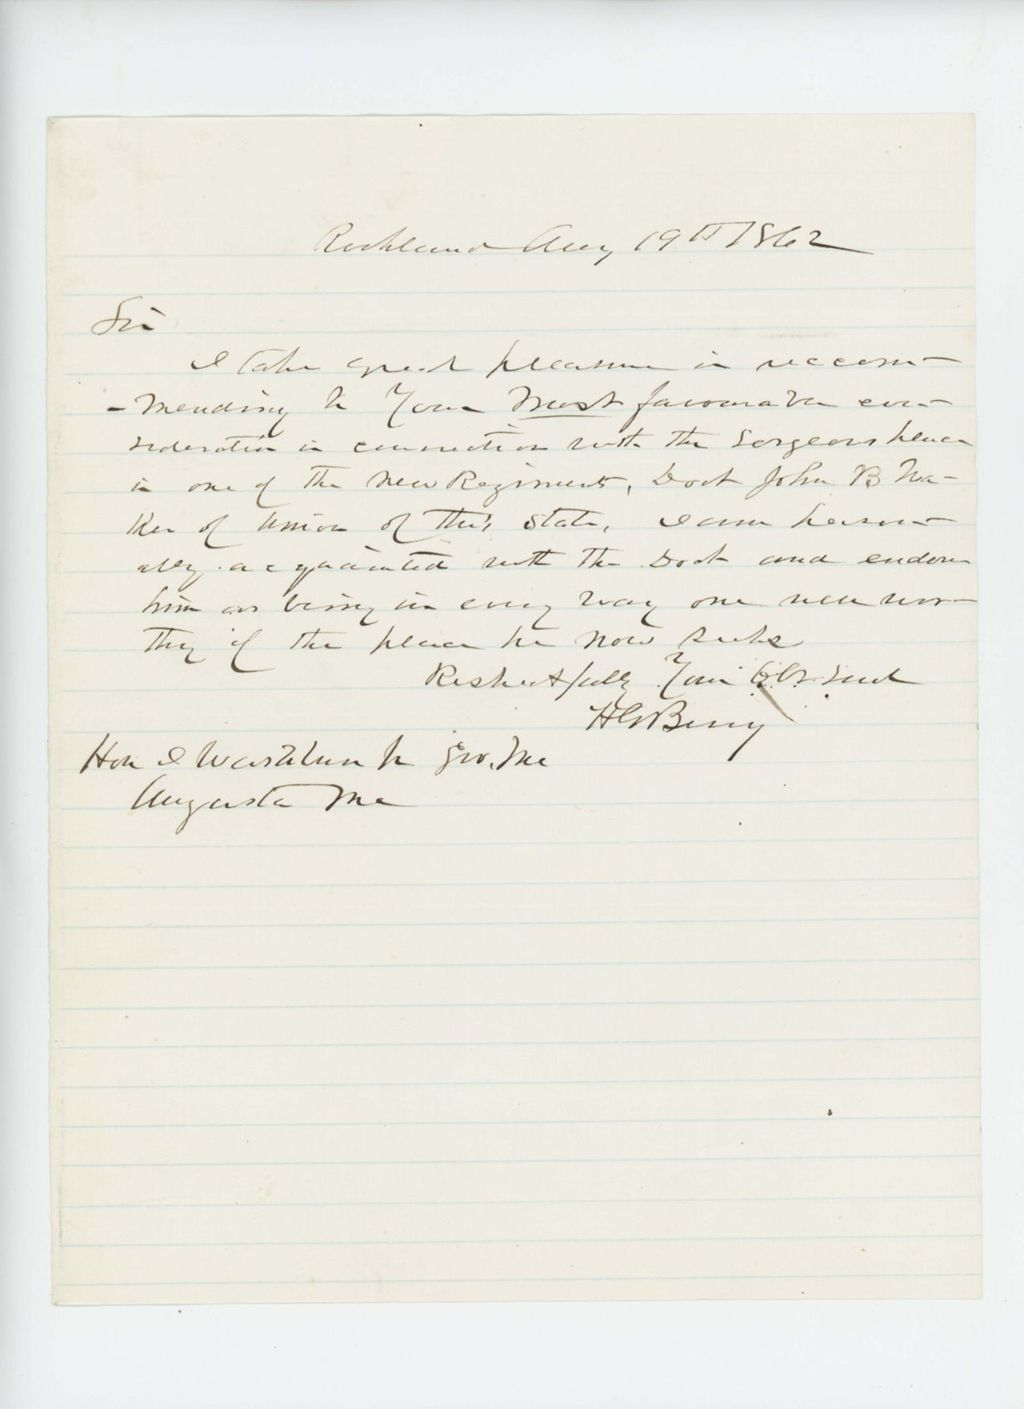 Rockland Aug 19th 1862
Sir
I take great pleasure in reccom-
-mending to Your Most favourable con-
sideration in connection with the Sergeons place
in one of the New Regiments, Doct John B Wa-
lker of Union of this State, I am person-
ally acquainted with the Doct and endorse
him as being in every way one well wor-
thy of the place he now seeks
Respectfully Your Obt Servt
H G Berry
Hon I Washburn Jr Gov. Me
Augusta Me